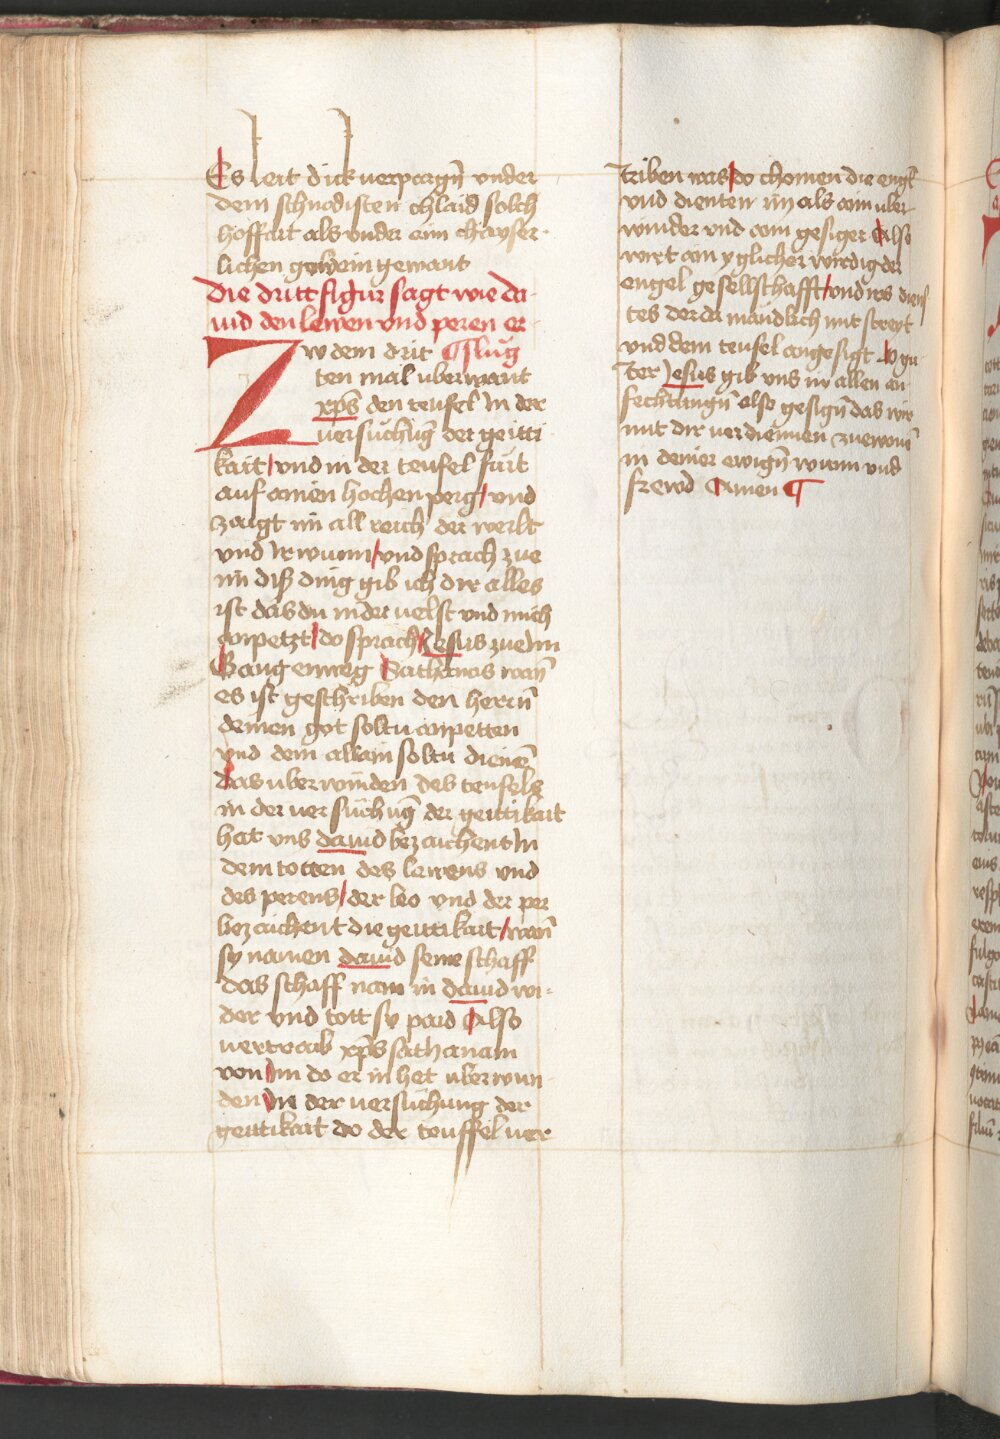 Es leit dick verporgn̄ vnder
dem schnodisten chlaid solch
hoffart als vnder aim chayser
lichen gewein gewant
Die dritt figur sagt wie da
uid den lewen vnd peren er
Zw dem drit ¶ slug
ten mal uberwant
xp̄s den teufel In der
versuchūg der geitti
kait / vnd in der teufel fürt
auf ainen hochen perg / vnd
zaigt im all reich der werlt
vnd Ir wunn / vnd sprach zue
im diß ding gib ich dir alles
ist das du nider velst vnd mich
anpetzt / do sprach Jesus zue Im
Gang enweg Sathanas wan̄
es ist geschriben den herrn̄
deinen got soltu anpetten
vnd dem allain soltu dienen̄
Das uberwinden des teufels
in der versuchūg der geittikait
hat vns dauid bezaichent In
dem totten des lewens vnd
des perens / der leo vnd der per
bezaichent die geittikait / wan̄
sy namen dauid seine schaff
das schaff nam in dauid wi-
der vnd tott sy paid Also
vertraib xp̄s sathanam
von Im do er in het uberwun
den In der versuchung der
geittikait do der teuffel ver
triben was / do chomen die engl
vnd dienten im als aim uber
winder vnd aim gesiger Also
wirt ain yglicher wirdig der
engel gesellschafft / vnd irs diens
tes der da mandlich mit streyt
vnd dem teufel angesigt O gu
ter Jesus gib vns in allen an
fechtungn̄ also gesign̄ das wir
mit dir verdiennen zuewonn̄
in deiner ewign̄ wunn vnd
frewd Amen ¶